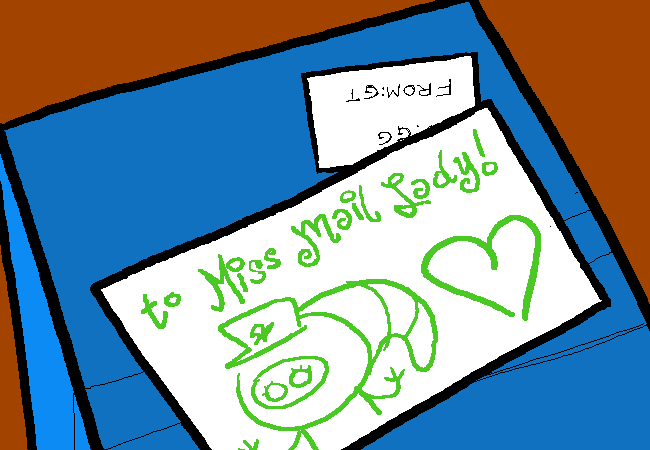 FROM:GT
:GG
to Miss Mail Lady!